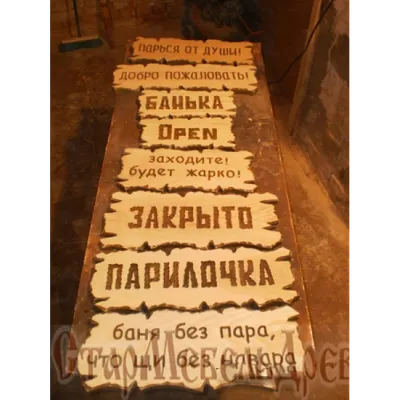 ПАРЬСЯ ОТ ДУШИ!
ДОБРО ПОЖАЛОВАТЬ!
БАНЬКА
OPEN
заходите!
будет жарко!
ЗАКРЫТО
ПАРИЛОЧКА
баня без пара,
что щи без навара
СтарМебельДрев